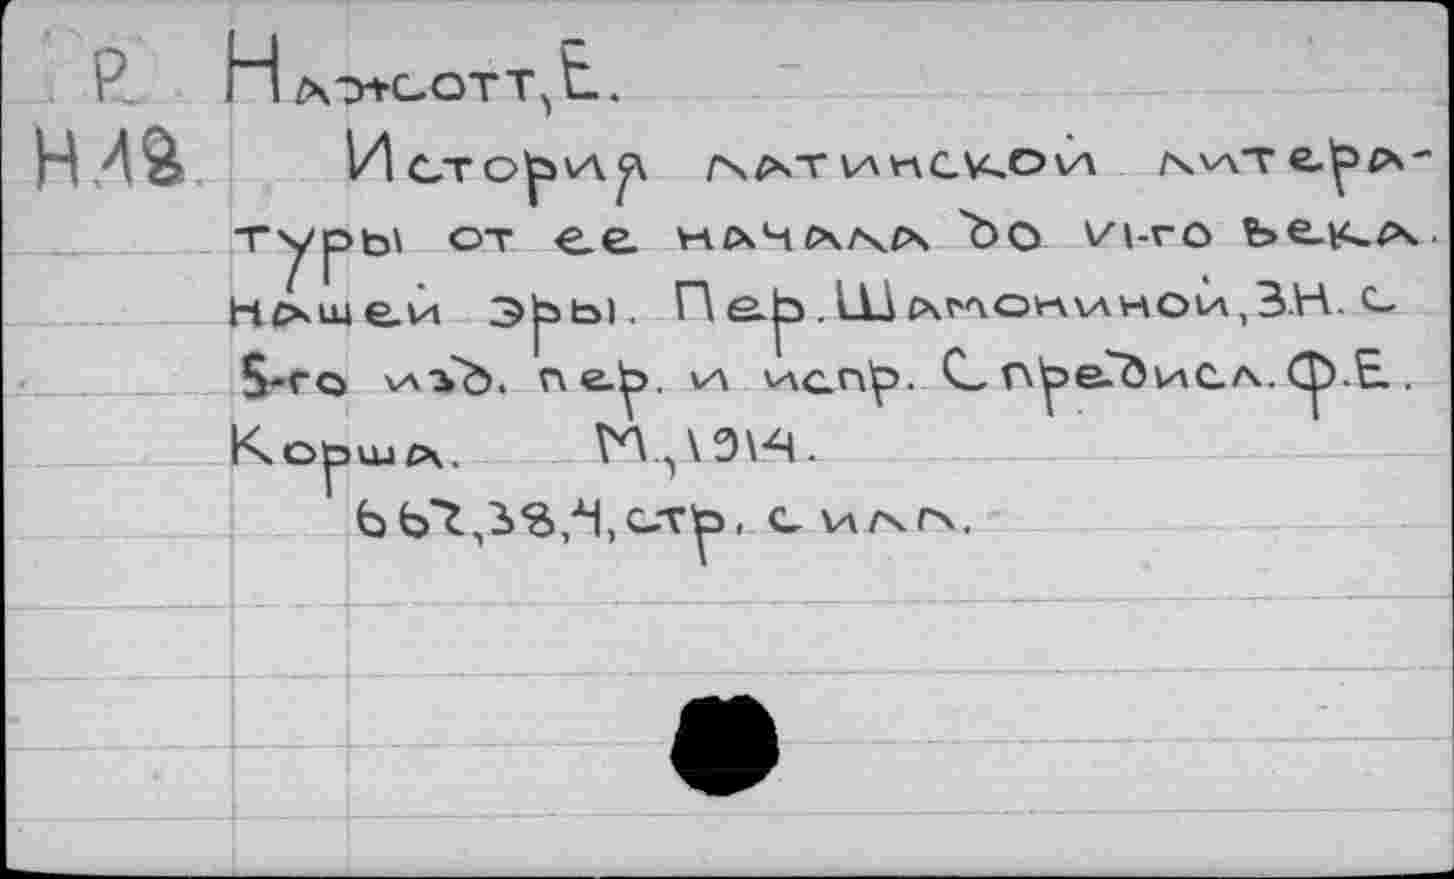 Р Нажотт, Е.
Н18 История латинской литера-
туры от ее начала до VI-го века.
нашей эры. Пер. Шамониной, З.Н. с
5-го изд. пер. и испр. С предисл. Ф.Е.
Корша. М., 1914.
667, 38, 4, стр. с илл.